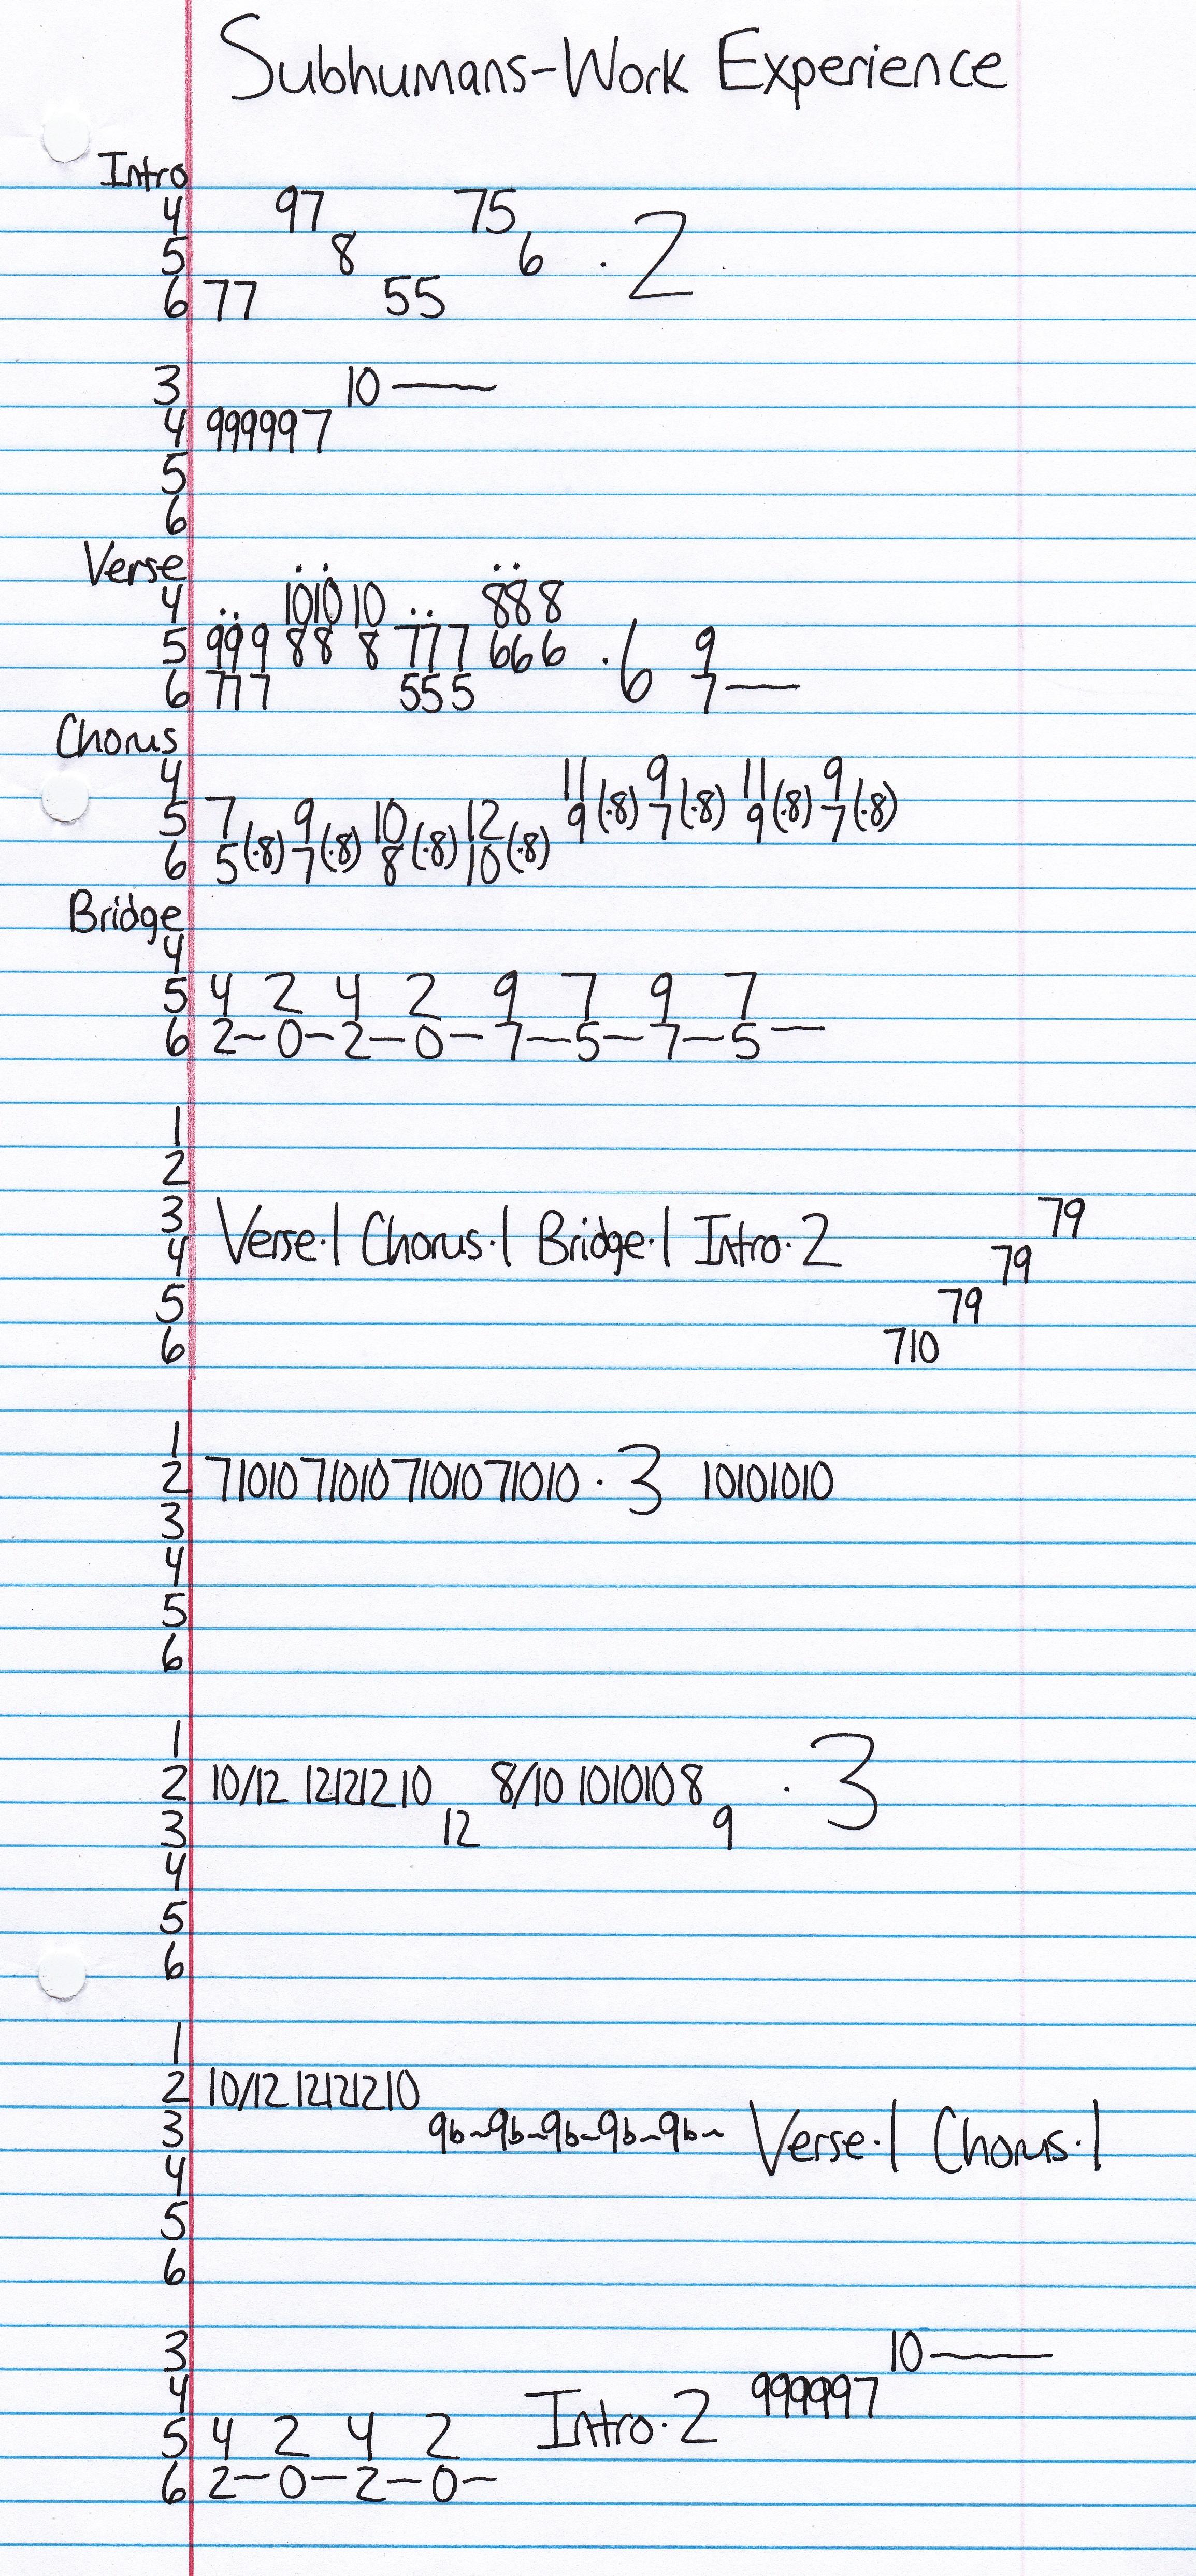 Subhumans-Work Experience
Intro
4 97 75
5 8 6 · 2
6 77 55
3 10 —
4 999997
5
6
Verse
4 101010 888
5 999 88 8 777 666 · 6 9
6 777 555 7 —
Chorus
4 11 9 11 9
5 7 9 10 12 9(·8) 7(·8) 9(·8) 7(·8)
6 5(·8) 7(·8) 8(·8) 10(·8)
Bridge
4
5 4 2 4 2 9 7 9 7
6 2–0–2–0–7–5–7–5—
1
2
3 79
4 Verse·1 Chorus·1 Bridge·1 Intro·2 79
5 79
6 710
1
2 71010 71010 71010 71010 · 3 10101010
3
4
5
6
1
2 10/12 12121210 8/10 1010108 · 3
3 12 9
4
5
6
1
2 10/12 12121210
3 9b~9b~9b~9b~9b~ Verse·1 Chorus·1
4
5
6
3 10 —
4 999997
5 4 2 4 2 Intro·2
6 2–0–2–0–